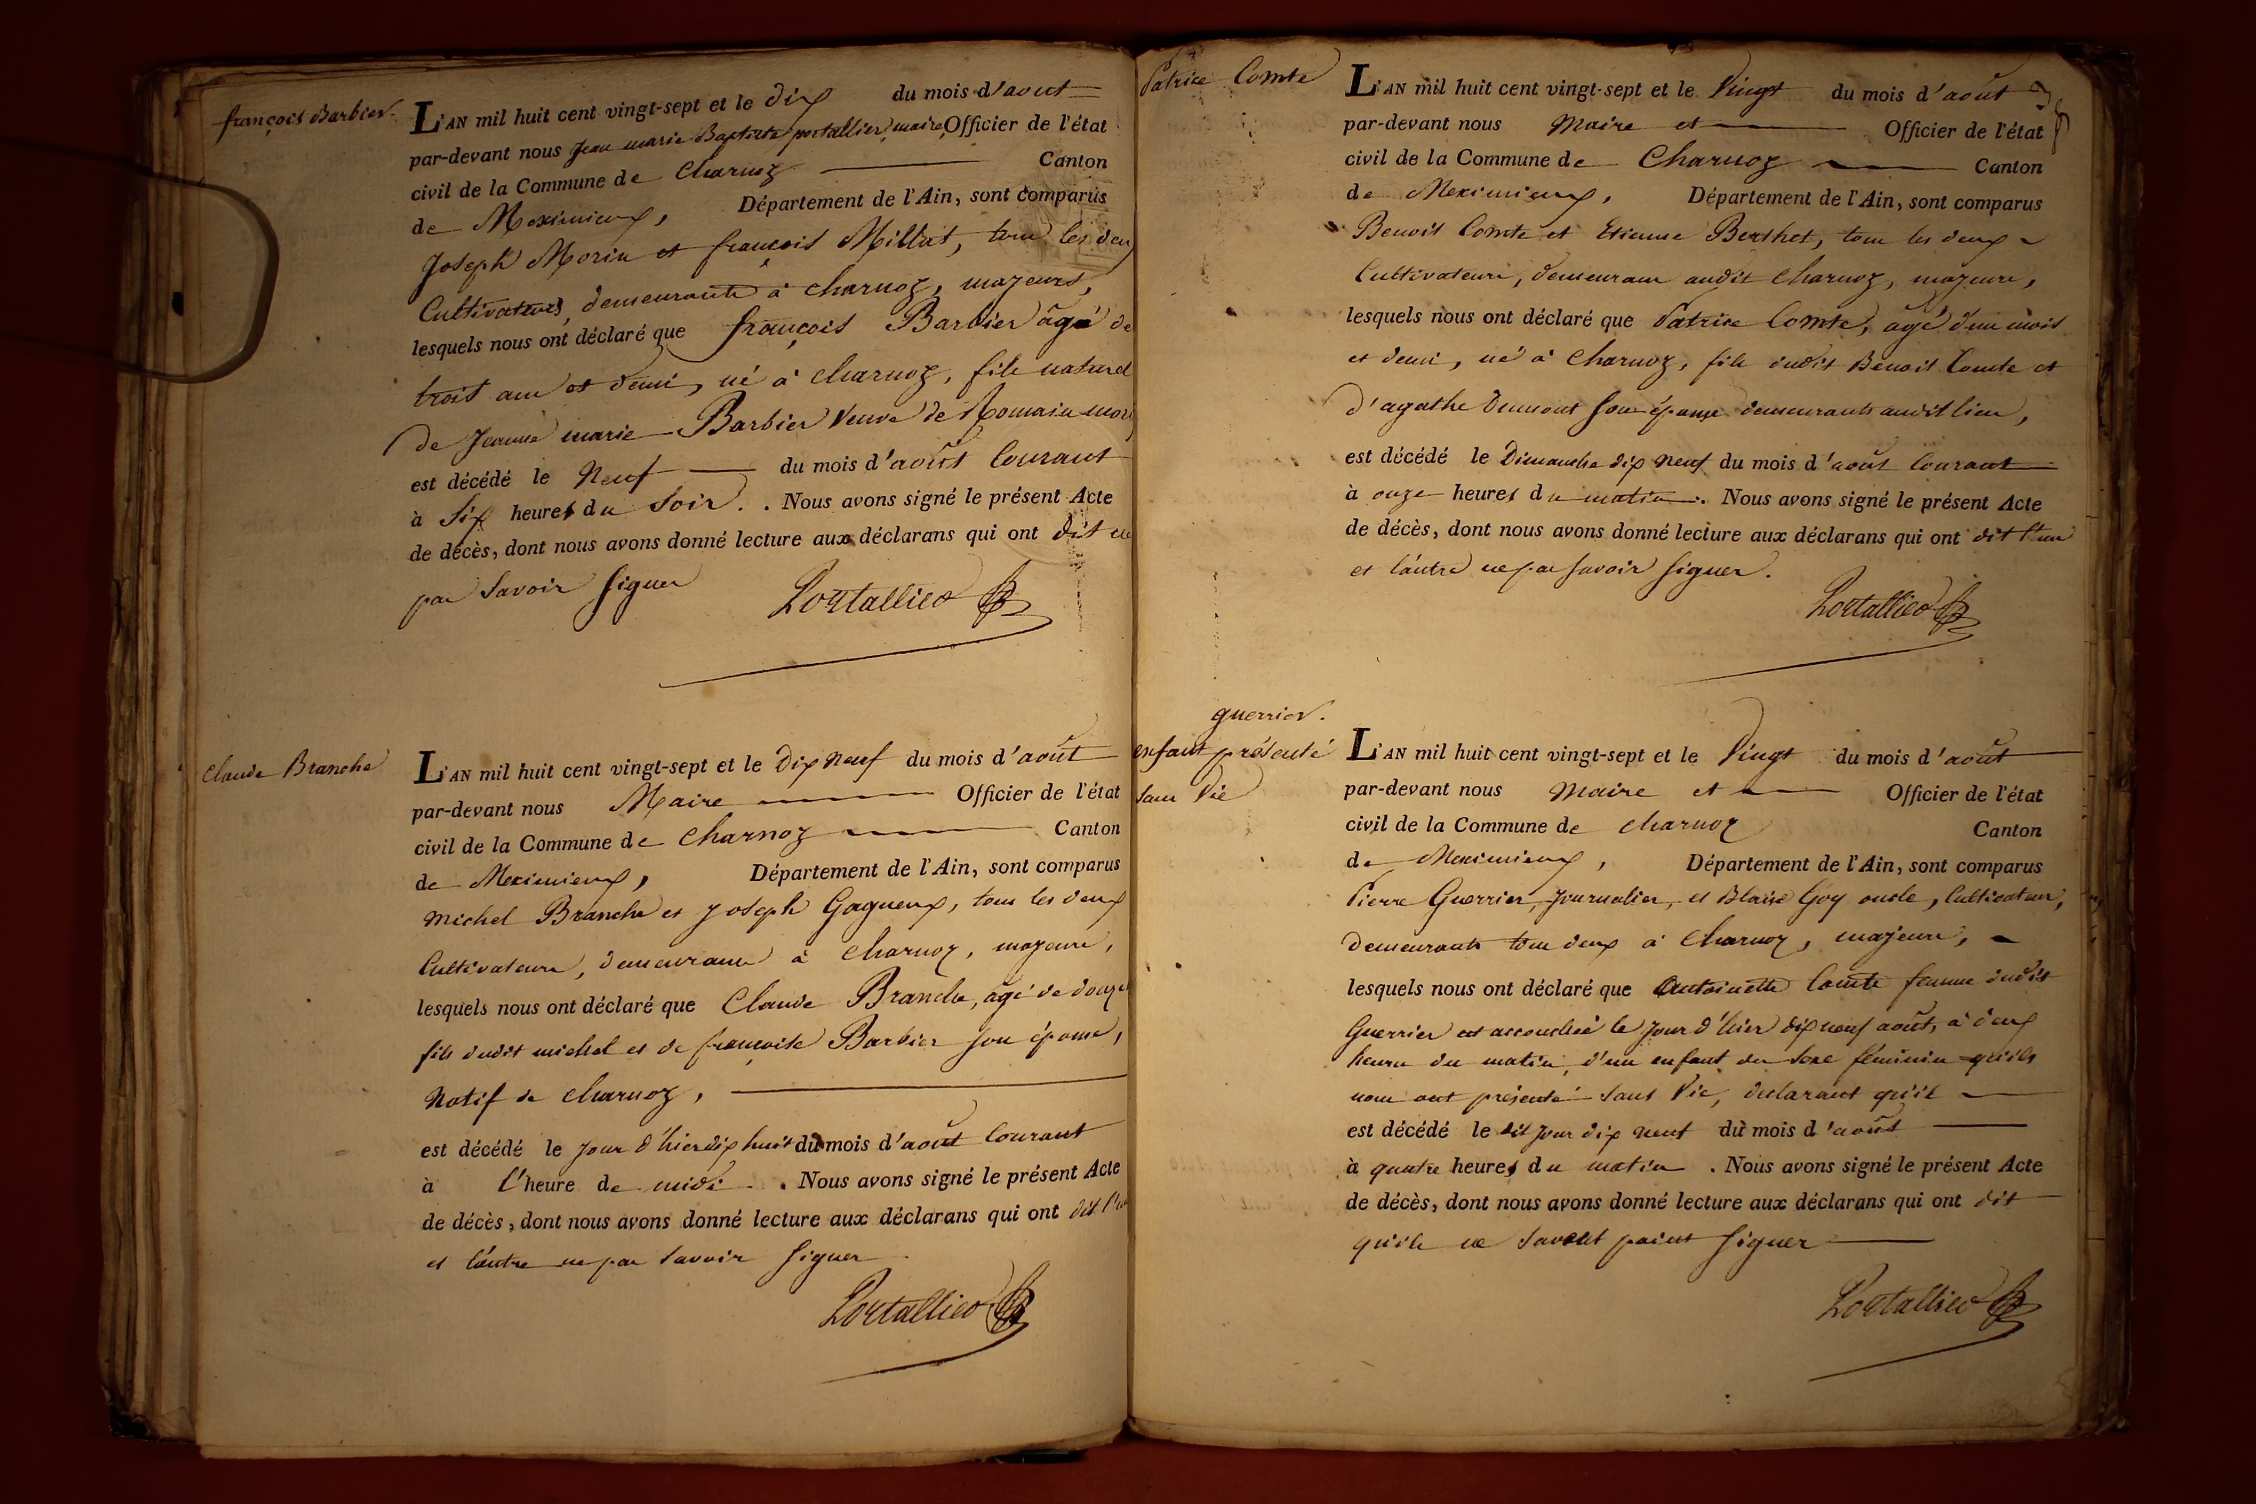 françois Barbier.
L'AN mil huit cent vingt-sept et le dix du mois d'aout
par-devant nous Jean marie Baptiste portallier, maire, Officier de l'état
civil de la Commune de Charnoz Canton
de Meximieux, Département de l'Ain, sont comparus
Joseph Morin et françois Millat, tous les deux
Cultivateurs, demeurants à charnoz, majeurs,
lesquels nous ont déclaré que françois Barbier âgé de
trois ans et demi, né à charnoz, fils naturel
de Jeanne marie Barbier Veuve de Romain
est décédé le Neuf du mois d'août Courant
à Six heures du Soir. . Nous avons signé le présent Acte
de décès, dont nous avons donné lecture aux déclarans qui ont dit ne
pas Savoir signer
Portallier
Claude Branche
L'AN mil huit cent vingt-sept et le Dix Neuf du mois d'août
par-devant nous Maire Officier de l'état
civil de la Commune de Charnoz Canton
de Meximieux, Département de l'Ain, sont comparus
Michel Branche et Joseph Gagneux, tous les deux
Cultivateurs, demeurans à Charnoz, majeurs,
lesquels nous ont déclaré que Claude Branche, âgé de douze
fils dudit michel et de françoise Barbier son épouse,
Natif de Charnoz,
est décédé le jour d'hier dix huit du mois d'août Courant
à l'heure de midi . Nous avons signé le présent Acte
de décès, dont nous avons donné lecture aux déclarans qui ont dit l'un
et l'autre ne pas Savoir signer
Portallier
Patrice Comte
L'AN mil huit cent vingt-sept et le Vingt du mois d'août
par-devant nous Maire et Officier de l'état
civil de la Commune de Charnoz Canton
de Meximieux, Département de l'Ain, sont comparus
Benoit Comte et Etienne Berthet, tous les deux
Cultivateurs, demeurans audit Charnoz, majeurs,
lesquels nous ont déclaré que Patrice Comte, âgé d'un mois
et demi, né à Charnoz, fils dudit Benoit Comte et
d'agathe Dumont son épouse demeurants audit lieu,
est décédé le Dimanche dix Neuf du mois d'août Courant
à onze heures du matin. Nous avons signé le présent Acte
de décès, dont nous avons donné lecture aux déclarans qui ont dit l'un
et l'autre ne pas savoir signer.
Portallier
guerrier.
enfant présenté
sans Vie
L'AN mil huit cent vingt-sept et le Vingt du mois d'août
par-devant nous Maire et Officier de l'état
civil de la Commune de Charnoz Canton
de Meximieux, Département de l'Ain, sont comparus
Pierre Guerrier, Journalier, et Blaise Goy oncle, Cultivateur,
demeurants tous deux à Charnoz, majeurs,
lesquels nous ont déclaré que Antoinette Comte femme dudit
Guerrier est accouchée le jour d'hier dix neuf août, à deux
heures du matin, d'un enfant du sexe féminin qu'ils
nous ont présenté sans Vie, déclarant qu'il
est décédé le dit jour dix neuf du mois d'août
à quatre heures du matin . Nous avons signé le présent Acte
de décès, dont nous avons donné lecture aux déclarans qui ont dit
qu'ils ne savent point signer
Portallier